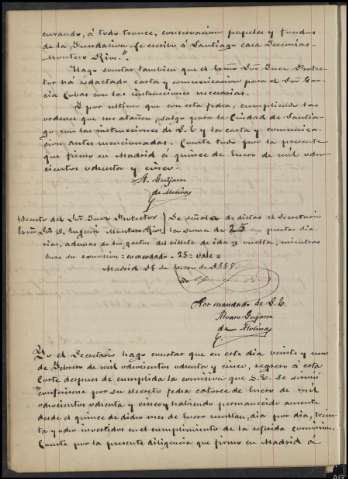 curando, á todo trance, conservacion papeles y fondos
de la Fundacion, se escribe á Santiago casa Jecsimias
Montero Rios."
Hago constar tambien que el Excmo Sor Juez Protec
tor ha redactado carta y comunicacion para el Sor Gar
cia Cubas con las instrucciones necesarias.
Y por ultimo que con esta fecha, cumpliendo las
ordenes que me atañen, salgo para la Ciudad de Santia
go, con las instrucciones de S. E. y la carta y comunica
cion, antes mencionadas. Consta todo por la presente
que firmo en Madrid á quince de Enero de mil ocho
cientos ochenta y cinco.
A. Guijarro
de Molina
Decreto del Sor Juez Protector
Excmo Sor D. Eugenio Montero Rios
Se señala de dietas al Secretario
la suma de 25 pesetas dia
rias, ademas de los gastos del billete de ida y vuelta, mientras
dure su comision = enmendado = 25 = vale =
Madrid de Enero de 1885.
Por mandado de S. E.
Alvaro Guijarro
de Molina
Yo el Secretario hago constar que en este dia veinte y uno
de Febrero de mil ochocientos ochenta y cinco, regreso á esta
Corte despues de cumplida la comision que S. E. se sirvió
conferirme por su decreto fecha catorce de Enero de mil
ochocientos ochenta y cinco y habiendo permanecido ausente
desde el quince de dicho mes de Enero resultan, dia por dia, trein
ta y ocho invertidos en el cumplimiento de la referida comision.
Consta por la presente diligencia que firmo en Madrid á